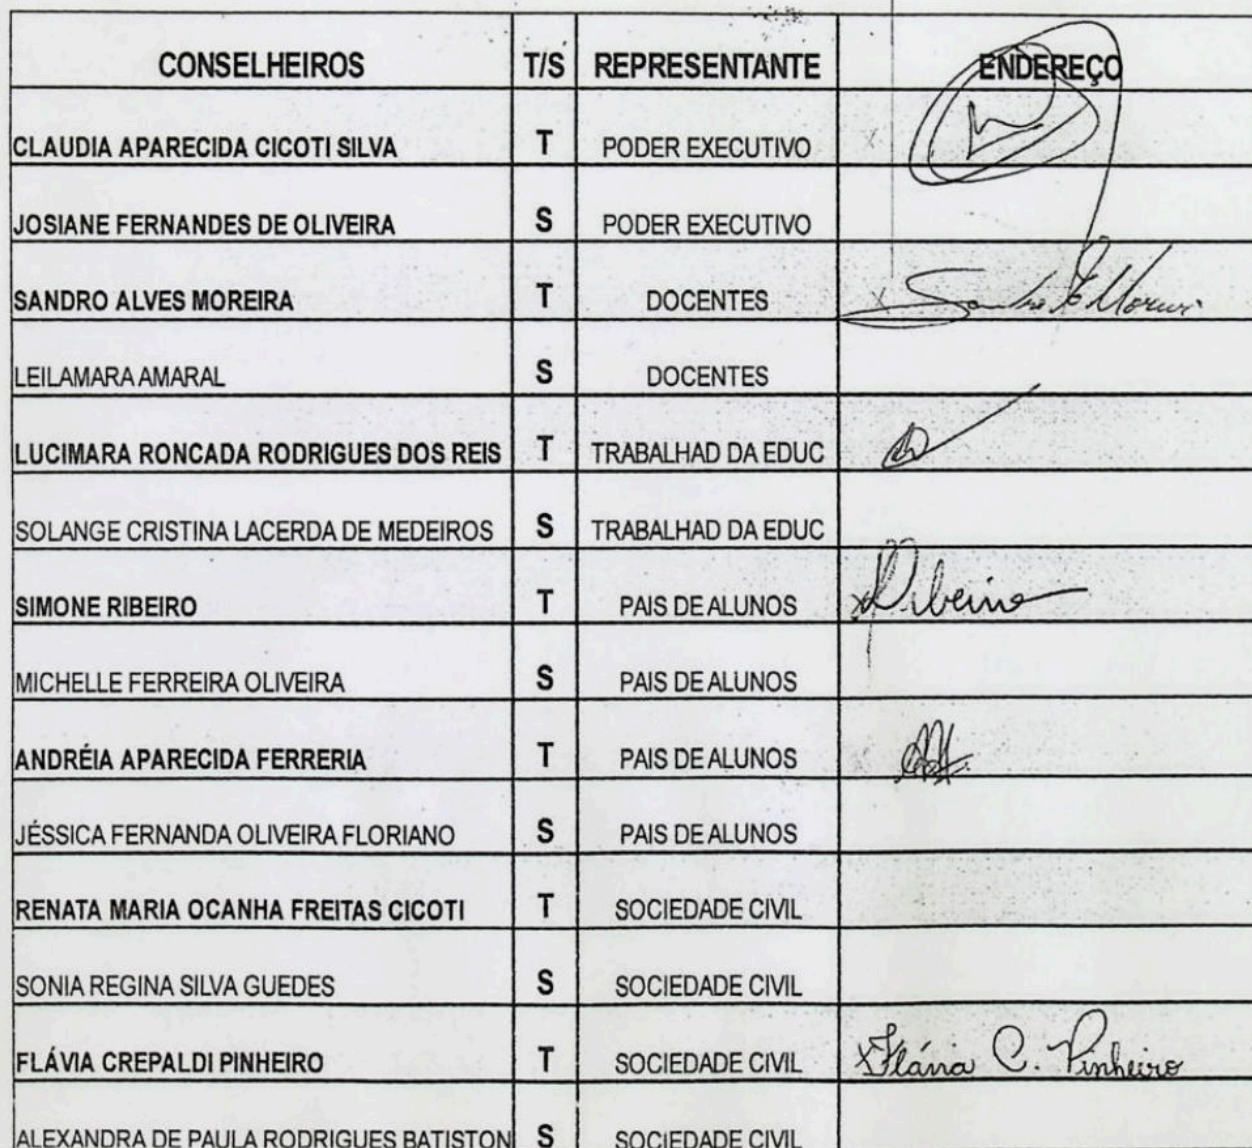 CONSELHEIROS T/S REPRESENTANTE ENDEREÇO
CLAUDIA APARECIDA CICOTI SILVA T PODER EXECUTIVO
JOSIANE FERNANDES DE OLIVEIRA S PODER EXECUTIVO
SANDRO ALVES MOREIRA T DOCENTES
LEILAMARA AMARAL S DOCENTES
LUCIMARA RONCADA RODRIGUES DOS REIS T TRABALHAD DA EDUC
SOLANGE CRISTINA LACERDA DE MEDEIROS S TRABALHAD DA EDUC
SIMONE RIBEIRO T PAIS DE ALUNOS Ribeiro
MICHELLE FERREIRA OLIVEIRA S PAIS DE ALUNOS
ANDRÉIA APARECIDA FERRERIA T PAIS DE ALUNOS
JÉSSICA FERNANDA OLIVEIRA FLORIANO S PAIS DE ALUNOS
RENATA MARIA OCANHA FREITAS CICOTI T SOCIEDADE CIVIL
SONIA REGINA SILVA GUEDES S SOCIEDADE CIVIL
FLÁVIA CREPALDI PINHEIRO T SOCIEDADE CIVIL x Flávia C. Pinheiro
ALEXANDRA DE PAULA RODRIGUES BATISTON S SOCIEDADE CIVIL